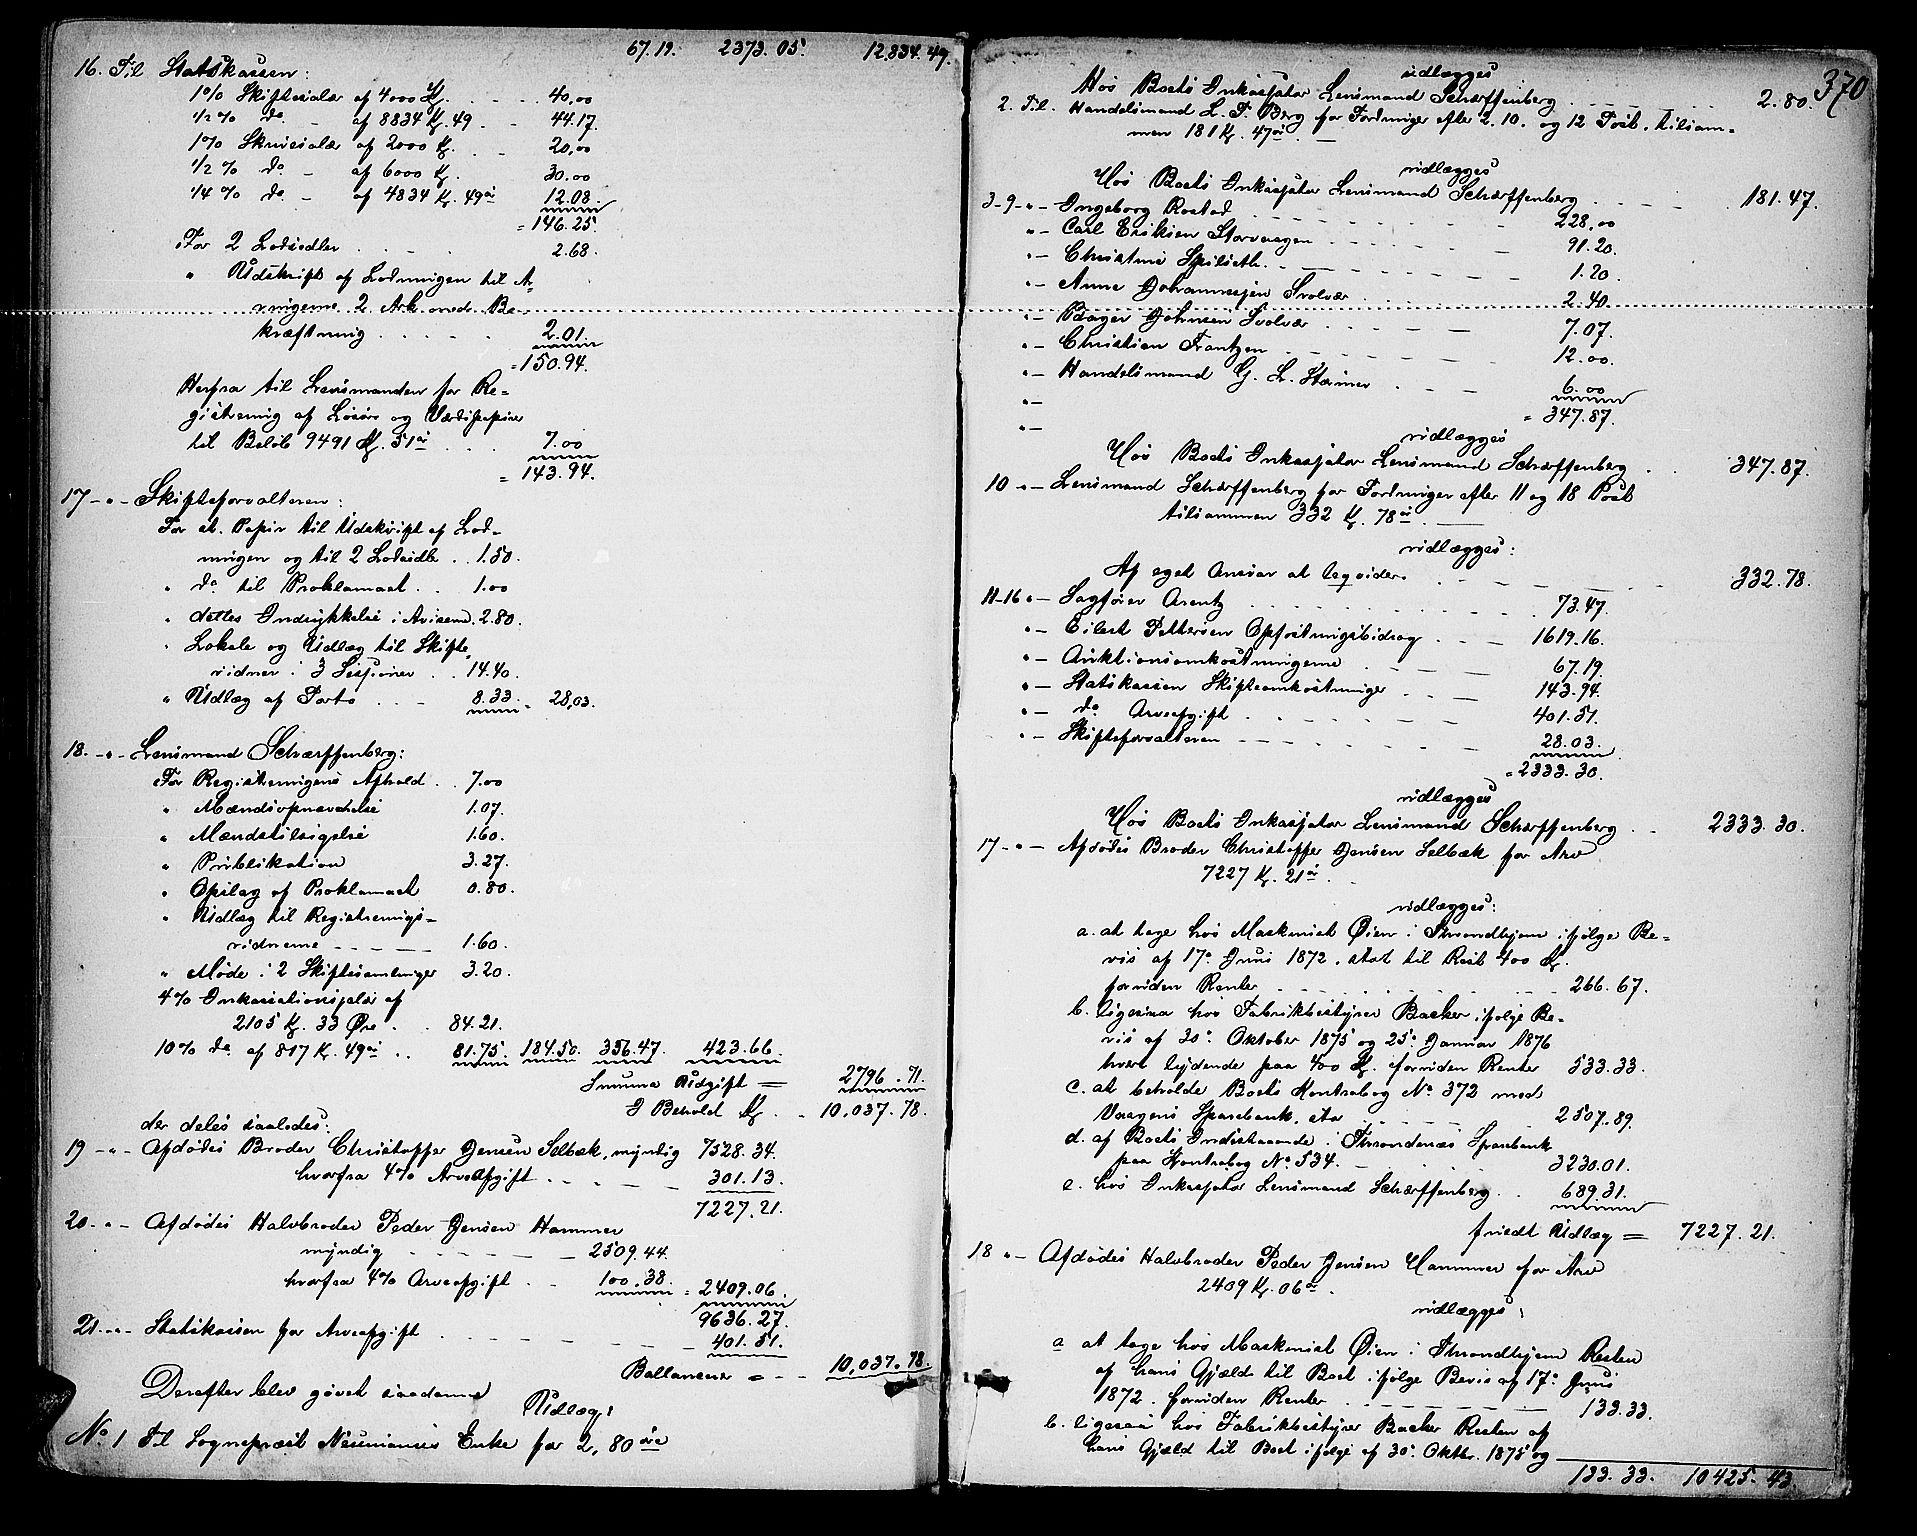 67.19. 2373.05. 12.834.49.
16. Til Statskassen:
1% Skiftesalær af 4000 Kr. 40,00
1/2% do - af 8834 Kr. 49 44.17.
1% Skrivesalær af 2000 Kr. 20,00
1/2% do - af 6000 Kr. 30.00
1/4% do - af 4834 Kr. 49 ø 12.08.
= 146.25.
For 2 Lodsedler 2.68.
" Udskrift af Lodningen til Ar-
vingerne 2 Ark med Be-
kræftning 2.01.
= 150.94.
Herfra til Lensmanden for Re-
gistrering af Løsøre og Værdipapirer
til Beløb 9491 Kr. 51 ø 7.00
= 143.94.
17 - " - Skifteforvalteren:
For st. Papir til Udskrift af Lod-
ningen og til 2 Lodsedle 1.50.
" do til Proklamaet 1.00
" dettes Indrykkelse i Avisene 2.80.
" Lokale og Udlæg til Skifte-
vidner i 3 Sessioner 14.40.
" Udlæg af Porto 8.33. = 28,03.
18. - " - Lensmand Schærffenberg:
For Registreringens Afhold 7.00
" Mændsopnævnelse 1.07.
" Mændstilsigelse 1.60.
" Publikation 3.27.
" Opslag af Proklamaet 0.80.
" Udlæg til Registrerings-
vidnerne 1.60.
" Møde i 2 Skiftesamlinger 3.20.
4% Inkassationssalær af
2105 Kr. 33 Øre 84.21.
10% do af 817 Kr. 49 ø 81.75. 184.50. 356.47. 423.66.
Summa Udgift = 2796.71.
I Behold Kr. 10,037.78.
der deles saaledes:
19 - " - Afdødes Broder Christoffer Jensen Selbæk, myndig 7528.34.
hvorfra 4% Arveafgift 301.13.
7227.21.
20. - " - Afdødes Halvbroder Peder Jensen Hammer
myndig 2509.44.
hvorfra 4% Arveafgift 100.38. = 2409.06.
9636.27.
21. - " - Statskassen for Arveafgift 401.51.
Ballancerer = 10,037.78.
Derefter blev gjort saadanne
Udlæg:
No 1 Til Sogneprest Neumanns Enke for 2,80 øre
370
udlægges
Hos Boets Inkassator Lensmand Schærffenberg 2.80.
2. Til Handelsmand L. T. Berg for Fordringer efter 2. 10. og 12 Post, tilsam-
men 181 Kr. 47 ø.
udlægges
Hos Boets Inkassator Lensmand Schærffenberg 181.47.
3-9 - " - Ingeborg Rostad 228,00
" - Carl Eriksen Storvaagen 91.20.
" - Christine 1.20
" - Anne Johannessen Svolvær 2.40.
" - Bager Johnsen Svolvær 7.07.
" - Christian Frantzen 12.00.
" - Handelsmand G. L. 6.00
" -
" - = 347.87.
udlægges
Hos Boets Inkassator Lensmand Schærffenberg 347.87.
10 " - Lensmand Schærffenberg for Fordringer efter 11 og 18 Post
tilsammen 332 Kr. 78 ø.
udlægges:
Af eget Ansvar at liqvidere 332.78.
11-16 " - Sagfører Arentz 73.47.
" - Eilert Pettersen Opfostringsbidrag 1619.16.
" - Auktionsomkostningerne 67.19.
" - Statskassen Skifteomkostninger 143.94.
" - do Arveafgift 401.51.
" - Skifteforvalteren 28.03.
= 2333.30.
udlægges
Hos Boets Inkassator Lensmand Schærffenberg 2333.30.
17 - " - Afdødes Broder Christoffer Jensen Selbæk for Arv
7227 Kr. 21 ø.
udlægges:
a. at tage hos Maskinist Øien i Throndhjem ifølge Be-
vis af 17de Juni 1872, stort til Rest 400 Kr.
foruden Renter 266.67.
b. ligesaa hos Fabrikbestyrer Backer ifølge Be-
vis af 30te Oktober 1875 og 25de Januar 1876
hvert lydende paa 400 Kr. foruden Renter 533.33.
c. at beholde Boets Kontrabog No 372 med
Vaagens Sparebank, stor 2507.89.
d. af Boets Indestaaende i Throndenæs Sparebank
paa Kontrabog No 534. 3230.01.
e. hos Inkassator Lensmand Schærffenberg 689.31.
fuldt Udlæg = 7227.21.
18 " - Afdødes Halvbroder Peder Jensen Hammer for Arv
2409 Kr. 06 ø.
udlægges:
a at tage hos Maskinist Øien i Throndhjem Resten
af hans Gjæld til Boet ifølge Bevis af 17de Juni
1872, foruden Renter 133.33.
b. ligesaa hos Fabrikbestyrer Backer Resten af
hans Gjæld til Boet ifølge af 30te Oktbr. 1875 og
133.33. 10425.43.